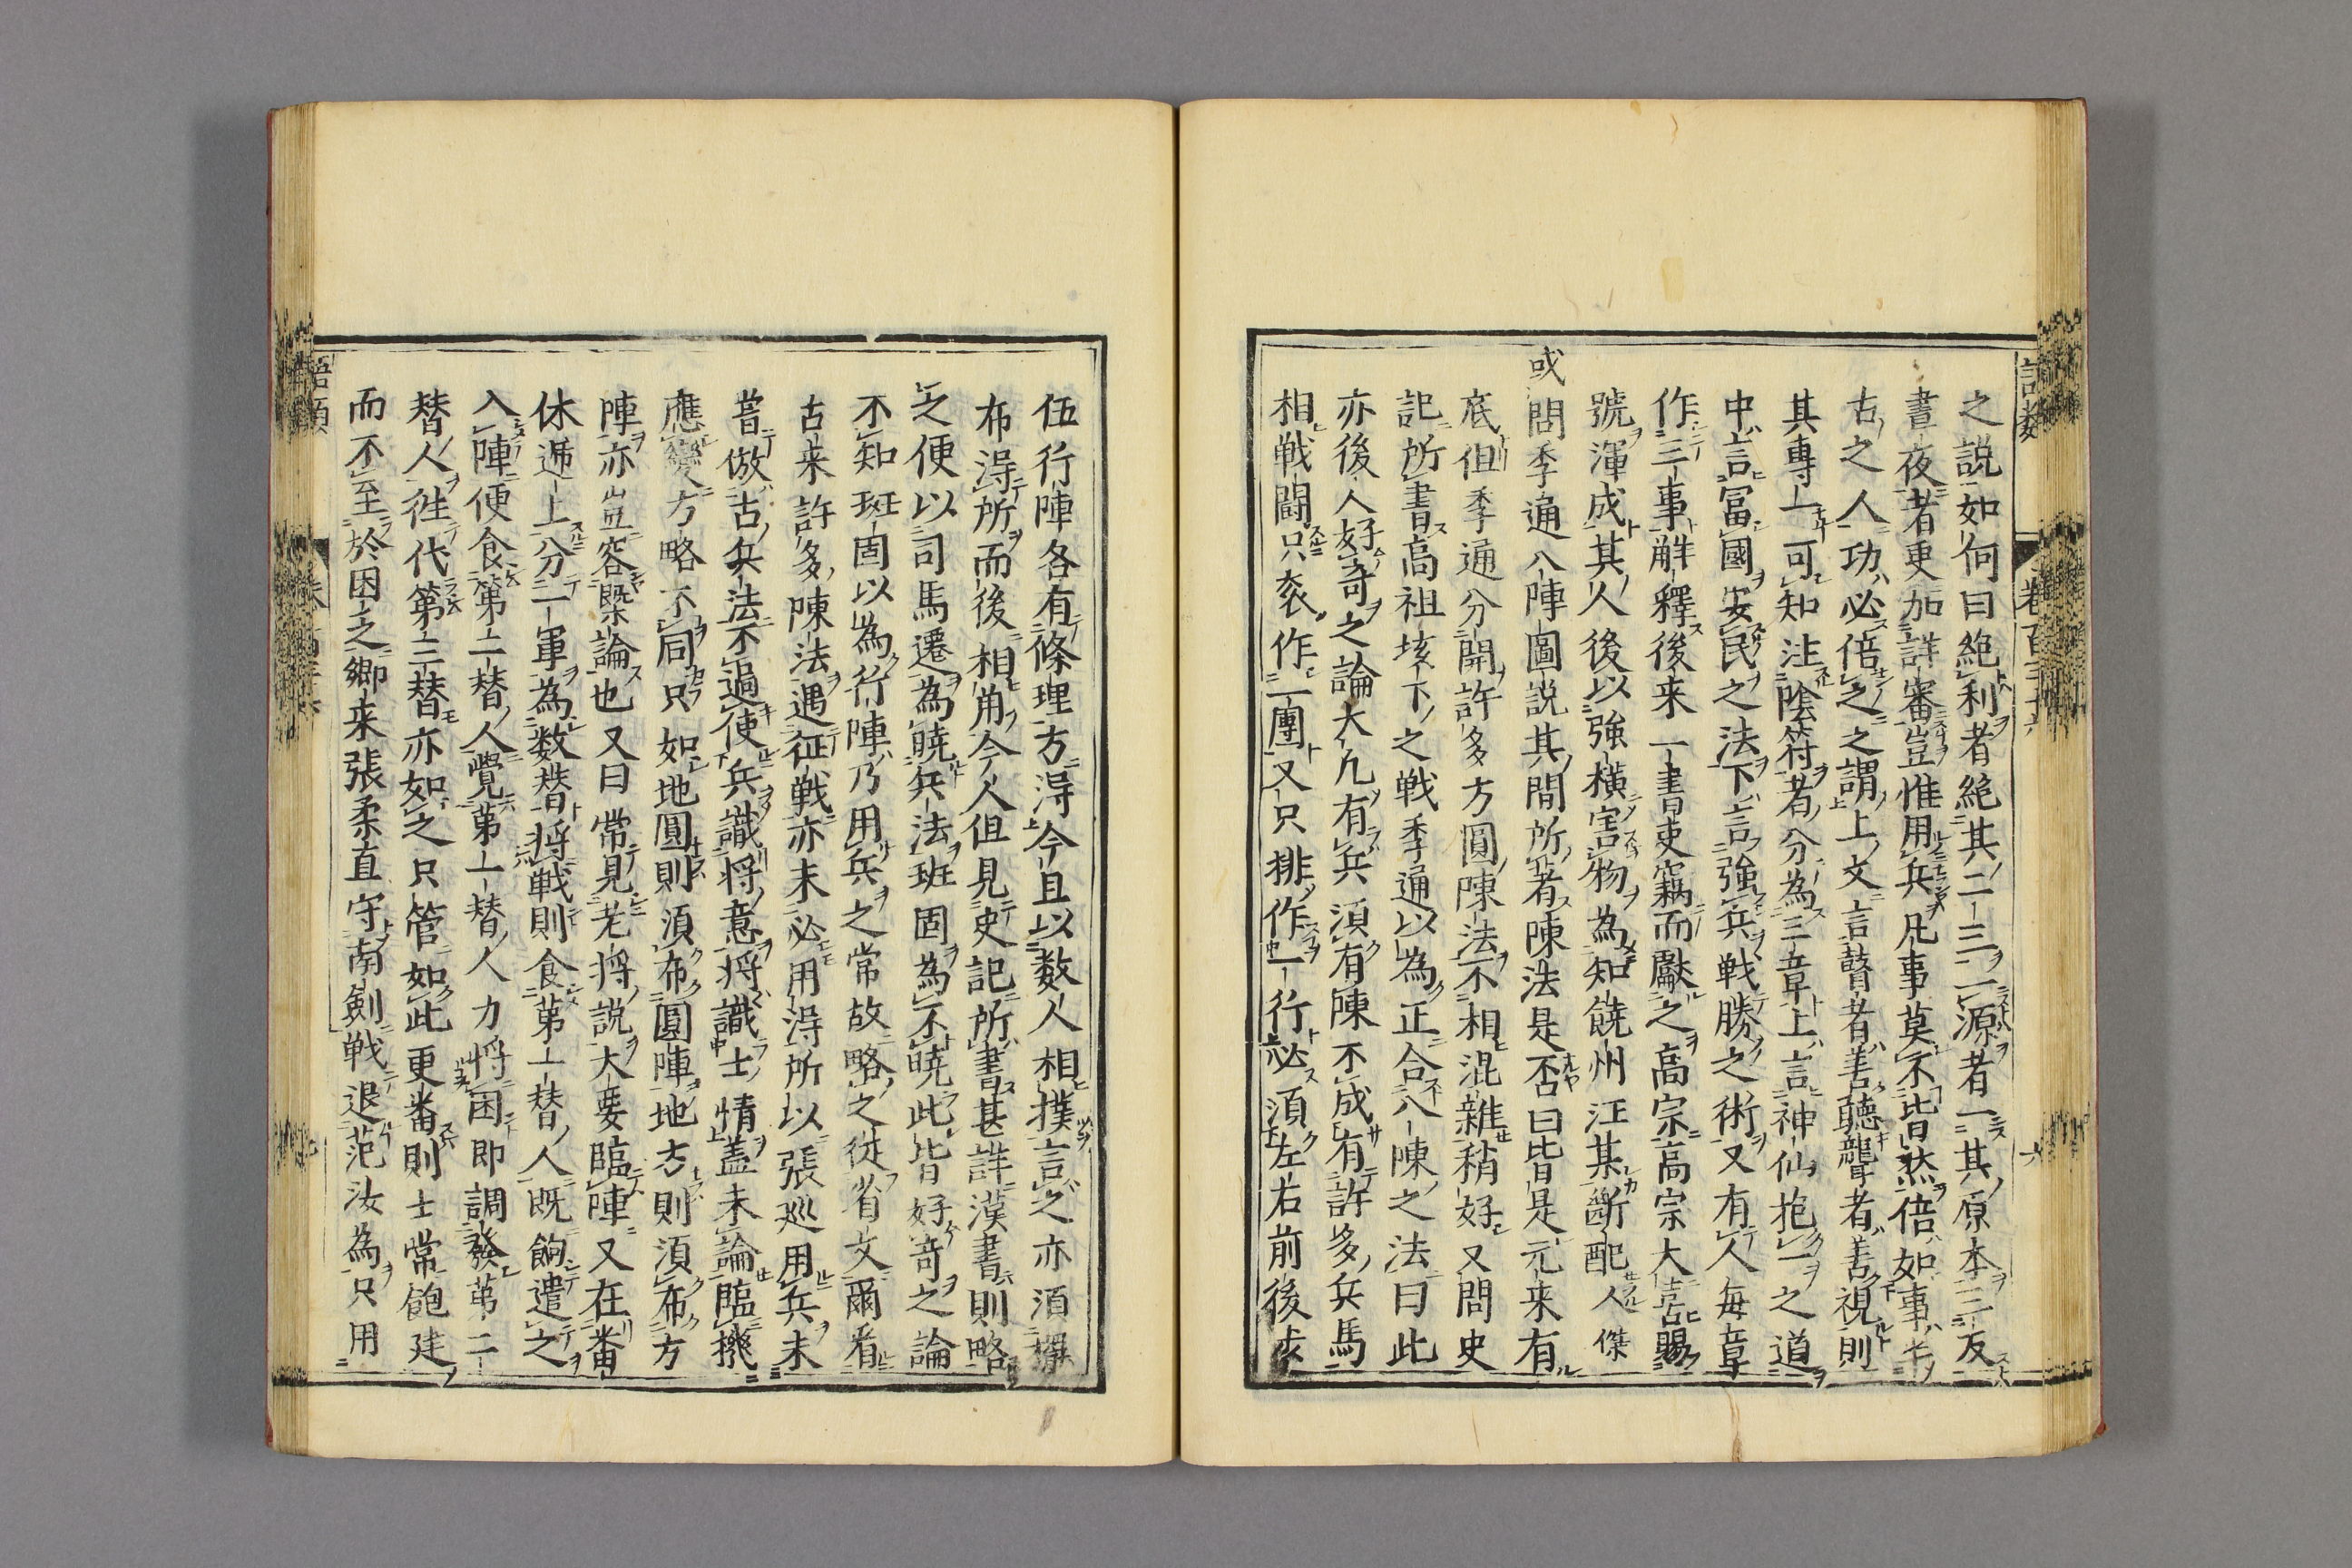 之説如何曰絶利者絶其二三一源者一其原本三反
晝夜者更加詳審豈惟用兵凡事莫不皆然倍如事半
古之人功必倍之之謂上文言瞽者善聽聾者善視則
其專一可知注陰符者分為三章上言神仙抱一之道
中言冨國安民之法下言強兵戦勝之術又有人毎章
作三事解釋後来一書吏竊而獻之高宗高宗大喜賜
號渾成其人後以強横害物為知饒州汪某斷配人傑
或問季通八陣圖説其間所著陳法是否曰皆是元来有
底但季通分開許多方圓陳法不相混雜稍好又問史
記所書高祖垓下之戦季通以為正合八陳之法曰此
亦後人好奇之論大凡有兵須有陳不成有許多兵馬
相戦鬪只衮作一團又只排作一行必須左右前後歩
語類
卷百三十六
六
伍行陣各有條理方淂今且以数人相撲言之亦須擺
布淂所而後相角今人但見史記所書甚詳漢書則略
之便以司馬遷為曉兵法班固為不曉此皆好奇之論
不知班固以為行陣乃用兵之常故略之従省文爾看
古来許多陳法遇征戦亦未必用淂所以張巡用兵未
嘗倣古兵法不過使兵識将意将識士情蓋未論臨機
應變方略不同只如地圓則須布圓陣地方則須布方
陣亦豈容槩論也又曰常見老将説大要臨陣又在番
休逓上分一軍為数替将戦則食第一替人既餉遣之
入陣便食第二替人覺第一替人力将困即調發第二
替人徃代第三替亦如之只管如此更番則士常飽健
而不至於困乏郷来張柔直守南剣戦退范汝為只用
語類